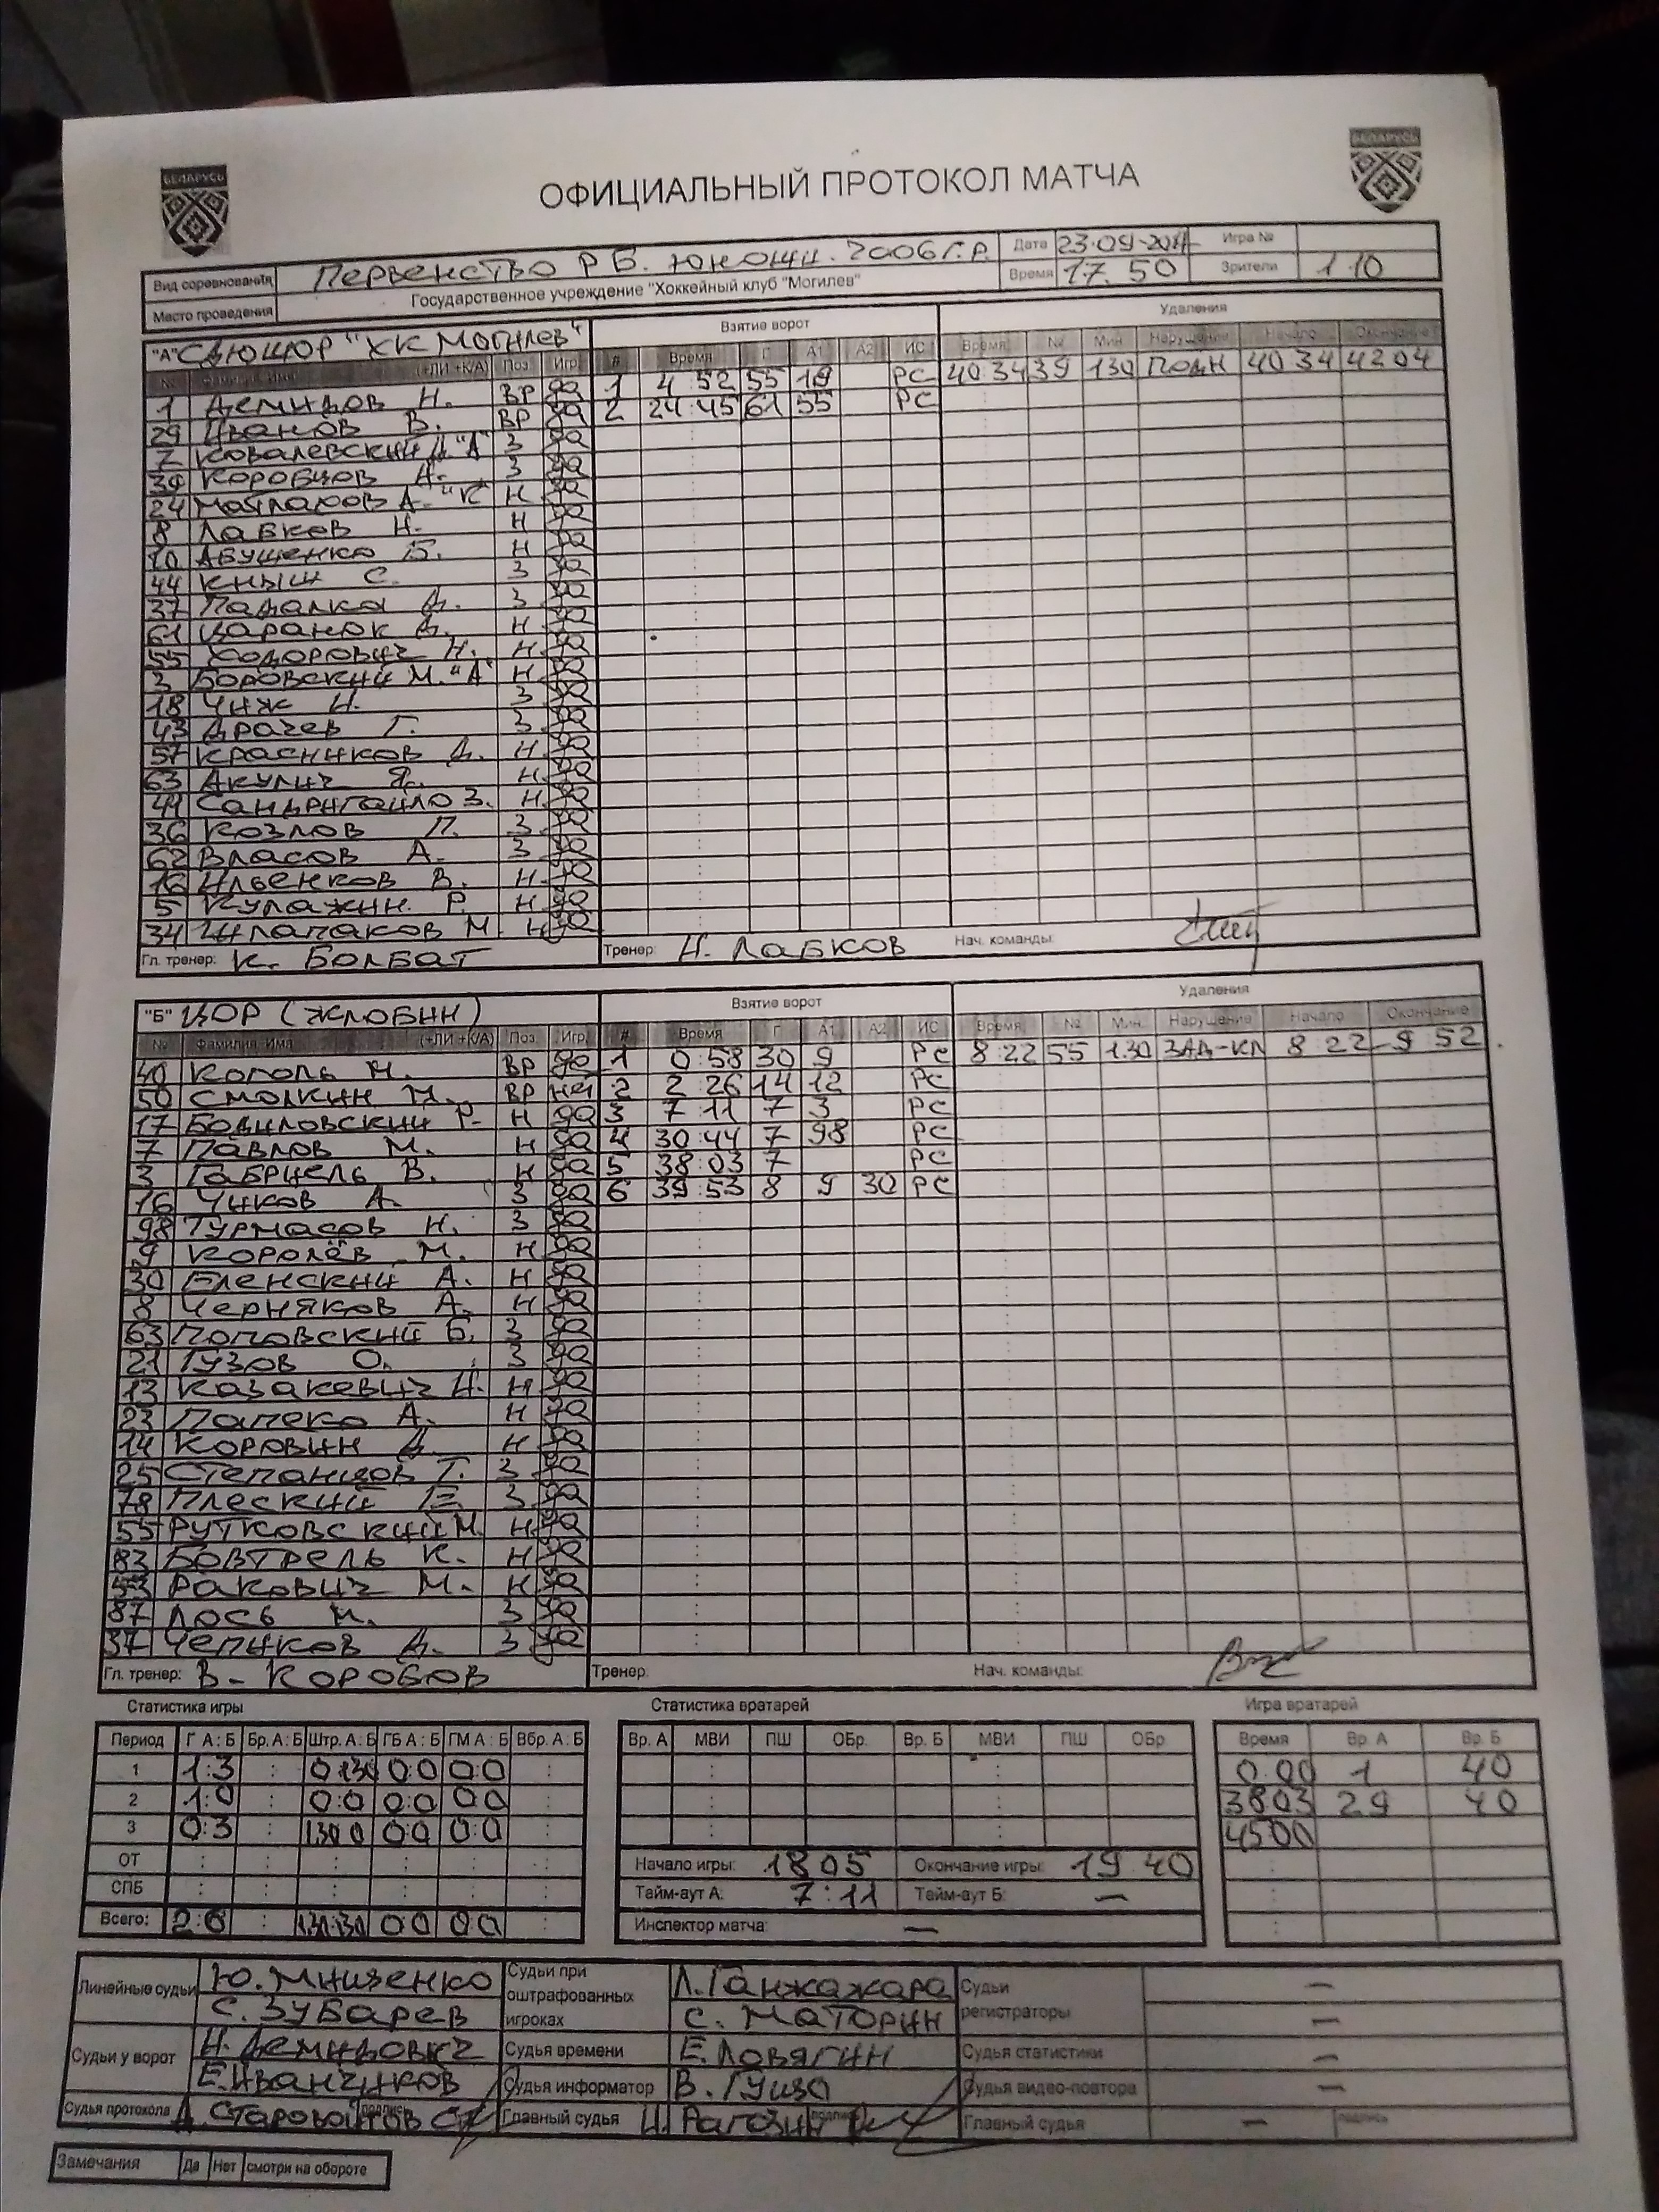 БЕЛАРУСЬ БЕЛАРУСЬ
ОФИЦИАЛЬНЫЙ ПРОТОКОЛ МАТЧА
Вид соревнования Первенство РБ. юноши. 2006 г.р. Дата Игра №
Время 17.50 Зрители 110
Место проведения Государственное учреждение "Хоккейный клуб "Могилев"
"А" СДЮШОР "ХК Могилев" Взятие ворот Удаления
№ Фамилия, Имя (+ЛИ +К/А) Поз Игр # Время Г А1 А2 ИС Время № Мин Нарушение Начало Окончание
1 Демидов Н. ВР да 1 4 52 55 19 РС 40 34 39 130 ПОДН 40 34 42 04
29 Иванов В. ВР да 2 24:45 61 55 РС
7 Ковалевский "А" З да
39 Коробцов З да
24 А. "К" Н да
8 Лабков Н. Н да
10 Абушенко Б. Н да
44 Кныш С. З да
37 Падалка Д. З да
61 Царанок Д. Н да
55 Ходорович Н. Н да
3 Боровский М. "А" Н да
18 Чиж И. З да
43 Драчев Г. З да
57 Красников Д. Н да
63 Акулич Я. Н да
З. Н да
36 Козлов П. З да
62 Власов А. З да
16 Ильенков В. Н да
5 Кулажин Р. Н да
34 Шлапаков М. Н да
Гл. тренер: К. Болбат Тренер: Н. Лабков Нач. команды:
"Б" ЦОР (Жлобин) Взятие ворот Удаления
№ Фамилия, Имя (+ЛИ +К/А) Поз Игр # Время Г А1 А2 ИС Время № Мин. Нарушение Начало Окончание
40 Коголь М. ВР да 1 0:58 30 9 РС 8:22 55 1.30 ЗАД-КЛ 8 22 9 52
50 Смолкин М. ВР нет 2 2 26 14 12 РС
17 Бодиловский Р. Н да 3 7 11 7 3 РС
7 Павлов М. Н да 4 30:44 7 98 РС
3 Габриель В. Н да 5 38:03 7 РС
16 Чиков А. З да 6 39:53 8 9 30 РС
98 Турмасов Н. З да
9 Королёв М. Н да
30 Еленский А. Н да
8 Черняков А. Н да
63 Поповский Б. З да
21 Гузов О. З да
13 Казакевич И. Н да
23 Папеко А. Н да
14 Коровин Д. Н да
25 Степанцов Т. З да
78 Плеский Е. З да
55 Рутковский М. Н да
83 Бовтрель К. Н да
Ракович М. Н да
87 Лось М. З да
37 Чепиков Д. З да
Гл. тренер: В. Коробов Тренер: Нач. команды:
Статистика игры Статистика вратарей Игра вратарей
Период Г А : Б Бр. А : Б Штр. А : Б ГБ А : Б ГМ А : Б Вбр. А : Б Вр. А МВИ ПШ ОБр. Вр. Б МВИ ПШ ОБр Время Вр. А Вр. Б
1 1:3 : 0:130 0:0 0:0 : 0:00 1 40
2 1:0 : 0:0 0:0 0:0 : 38 03 29 40
3 0:3 : 130 0 0:0 0:0 : 45 00
ОТ : : : : : : Начало игры: 18 05 Окончание игры: 19 40
СПБ : : : : : : Тайм-аут А: 7:11 Тайм-аут Б: —
Всего: 2:6 : 130:130 0:0 0:0 : Инспектор матча: —
Линейные судьи Ю. Мнизенко Судьи при оштрафованных игроках Л. Ганжажара Судьи регистраторы —
С. Зубарев С. Маторин —
Судьи у ворот Н. Демидович Судья времени Е. Ловягин Судья статистики —
Е. Иванчиков Судья информатор В. Гуща Судья видео-повтора —
Судья протокола Д. Старовойтов подпись Главный судья И. Рагозин подпись Главный судья — подпись
Замечания Да Нет смотри на обороте